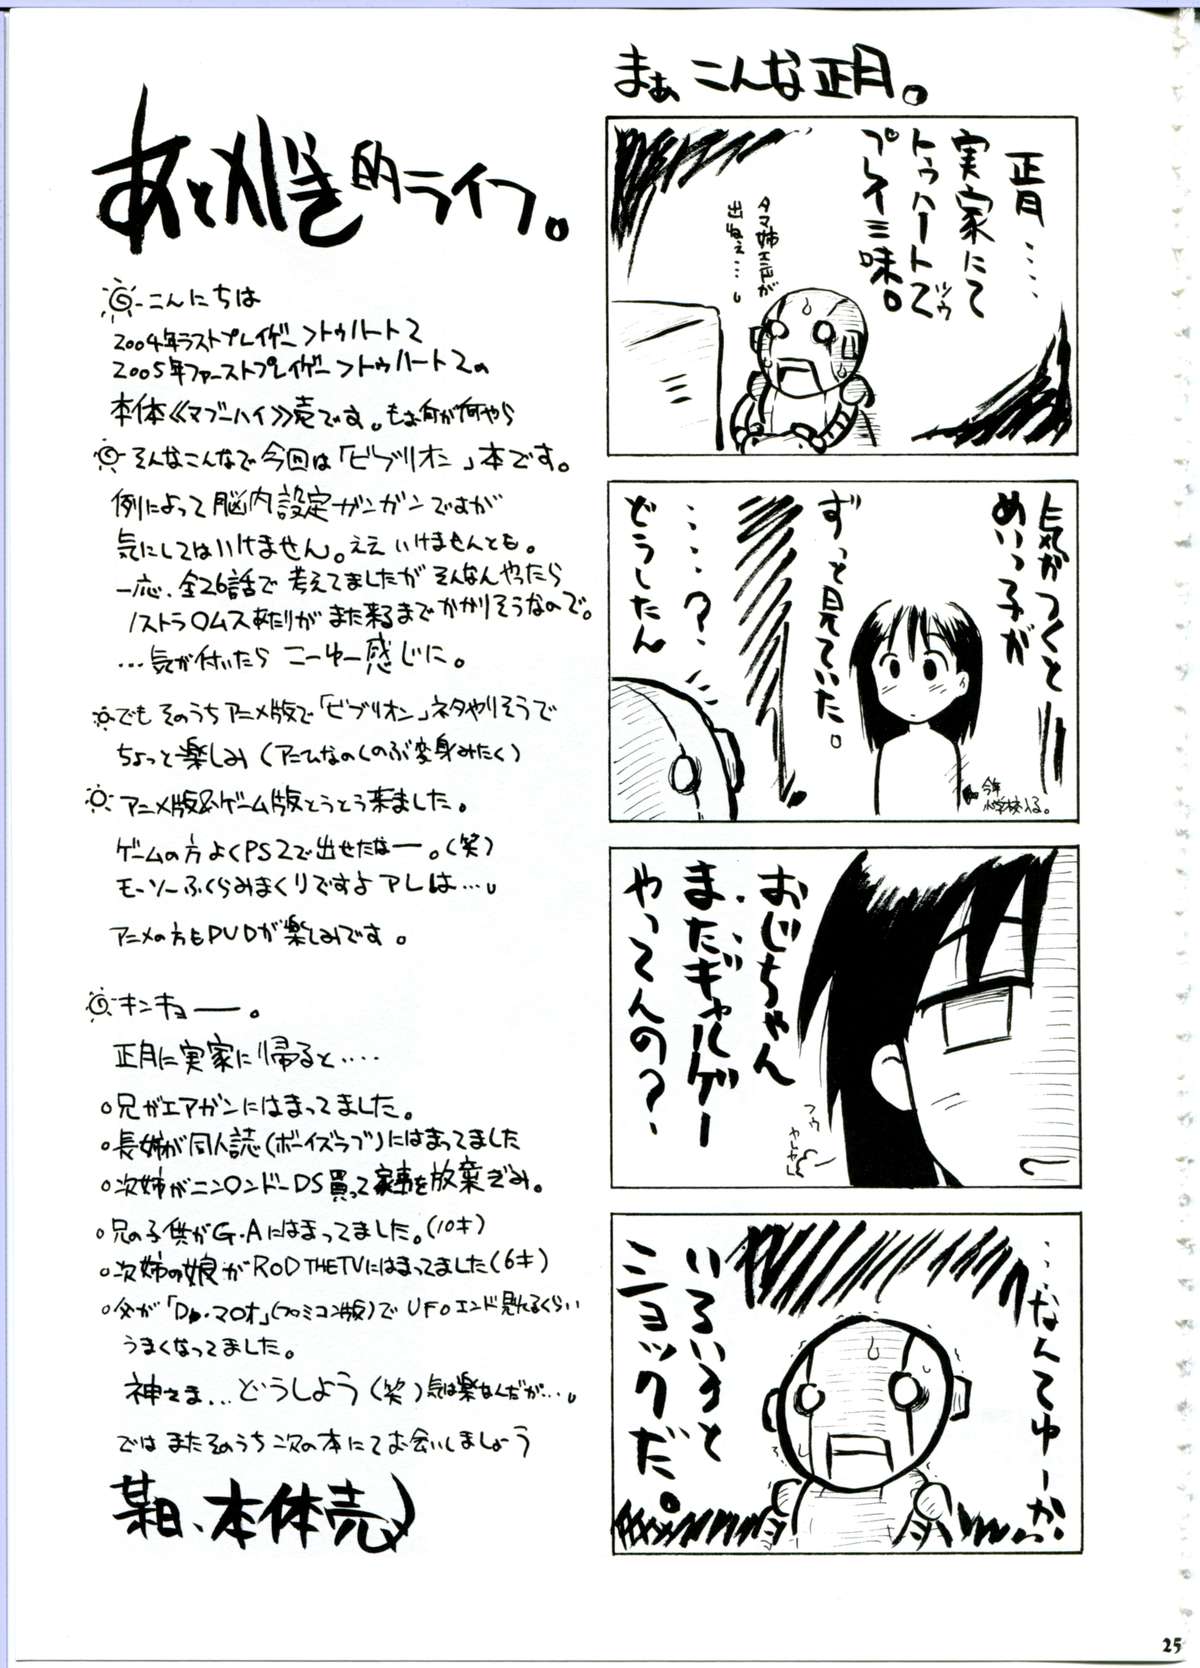 まぁ こんな正月。
正月‥‥
実家にて
トゥハートで
ツゥ
プレイ三昧。
タマ姉エンドが
出ねぇ…。
気がつくと
めいっ子が
ずっと見ていた。
‥‥?
どうしたん
今年
小学校入る。
おじちゃん
またギャルゲー
やってんの?
フゥ
ヤレヤレ
‥なんてゆーか
いろいろと
ショックだ。
あとがき的ライフ。
こんにちは
2004年ラストプレイゲー>トゥハート2
2005年ファーストプレイゲー>トゥハート2の
本体《マブーハイ》売です。もぉ何が何やら
そんなこんなで今回は「ビブリオン」本です。
例によって脳内設定ガンガンですが
気にしてはいけません。ええ いけませんとも。
一応、全26話で考えてましたが そんなんやったら
ノストラ〇ムスあたりがまた来るまでかかりそうなので。
…気が付いたら こーゆー感じに。
でも そのうちアニメ版で「ビブリオン」ネタやりそうで
ちょっと楽しみ(アニひなのしのぶ変身みたく)
アニメ版&ゲーム版とうとう来ました。
ゲームの方よくPS2で出せたなー。(笑)
モーソーふくらみまくりですよアレは…。
アニメの方もDVDが楽しみです。
キンキョー。
正月に実家に帰ると‥‥
○兄がエアガンにはまってました。
○長姉が同人誌(ボーイズラブ)にはまってました
○次姉がニン〇ンドーDS買って家事を放棄ぎみ。
○兄の子供がG・Aにはまってました。(10才)
○次姉の娘がROD THE TVにはまってました(6才)
○父が「Dr.マ〇オ」(ファミコン版)でUFOエンド見れるくらい
うまくなってました。
神さま…どうしよう(笑)気は楽なんだが…。
では またそのうち次の本にてお会いしましょう
某日、本体売
25